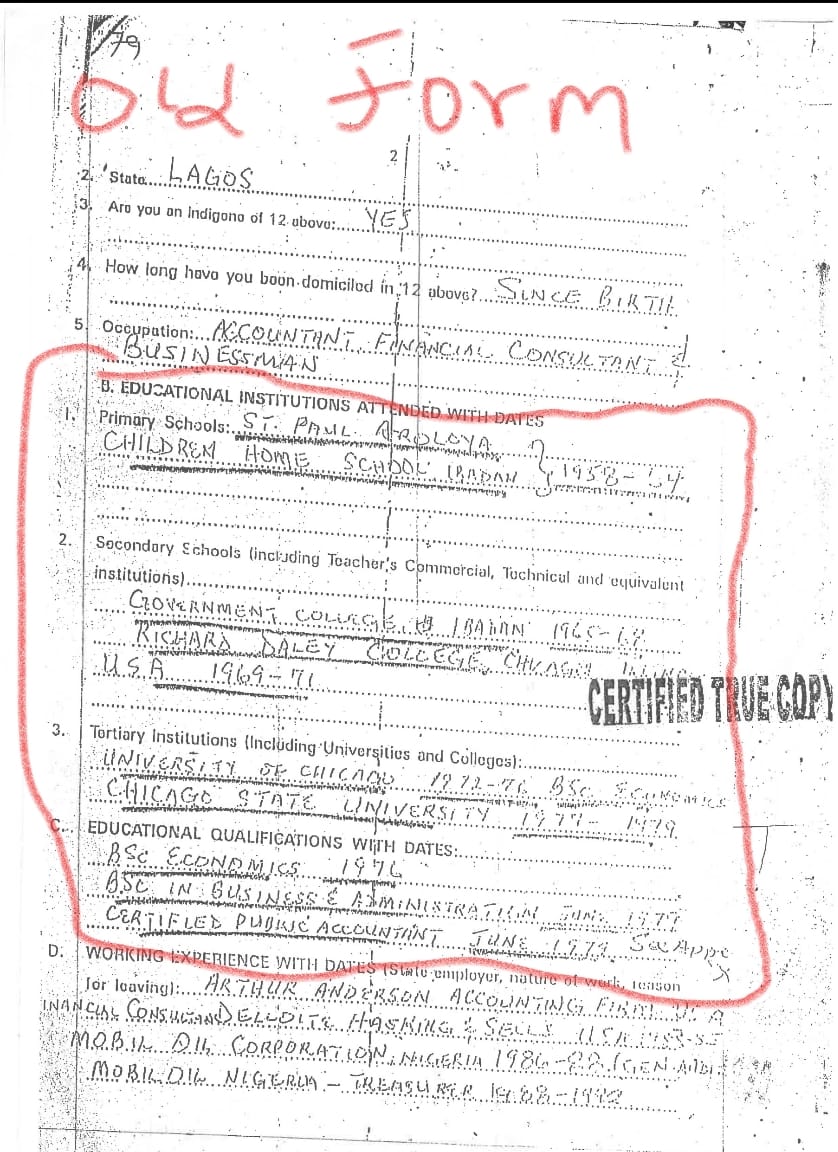 79
Old Form
2
2. State: LAGOS
3. Are you an Indigene of 12 above: YES
4. How long have you been domiciled in 12 above? SINCE BIRTH
5. Occupation: ACCOUNTANT, FINANCIAL CONSULTANT &
BUSINESSMAN
B. EDUCATIONAL INSTITUTIONS ATTENDED WITH DATES
1. Primary Schools: ST. PAUL AROLOYA
CHILDREN HOME SCHOOL IBADAN } 1958-64
2. Secondary Schools (including Teacher's Commercial, Technical and equivalent
institutions)
GOVERNMENT COLLEGE, IBADAN 1965-68
RICHARD DALEY COLLEGE, CHICAGO
U.S.A 1969-71
CERTIFIED TRUE COPY
3. Tertiary Institutions (Including Universities and Colleges):
UNIVERSITY OF CHICAGO 1972-76 BSc ECONOMICS
CHICAGO STATE UNIVERSITY 1977-1979
C. EDUCATIONAL QUALIFICATIONS WITH DATES:
BSc ECONOMICS 1976
BSC IN BUSINESS & ADMINISTRATION JUNE 1979
CERTIFIED PUBLIC ACCOUNTANT JUNE 1979
D. WORKING EXPERIENCE WITH DATES (State employer, nature of work, reason
for leaving): ARTHUR ANDERSON ACCOUNTING FIRM
INANCIAL CONSULTAN DELLOITE HASKING & SELLS USA 1983-85
MOBIL OIL CORPORATION, NIGERIA 1986-88
MOBIL OIL NIGERIA - TREASURER 1988-1992